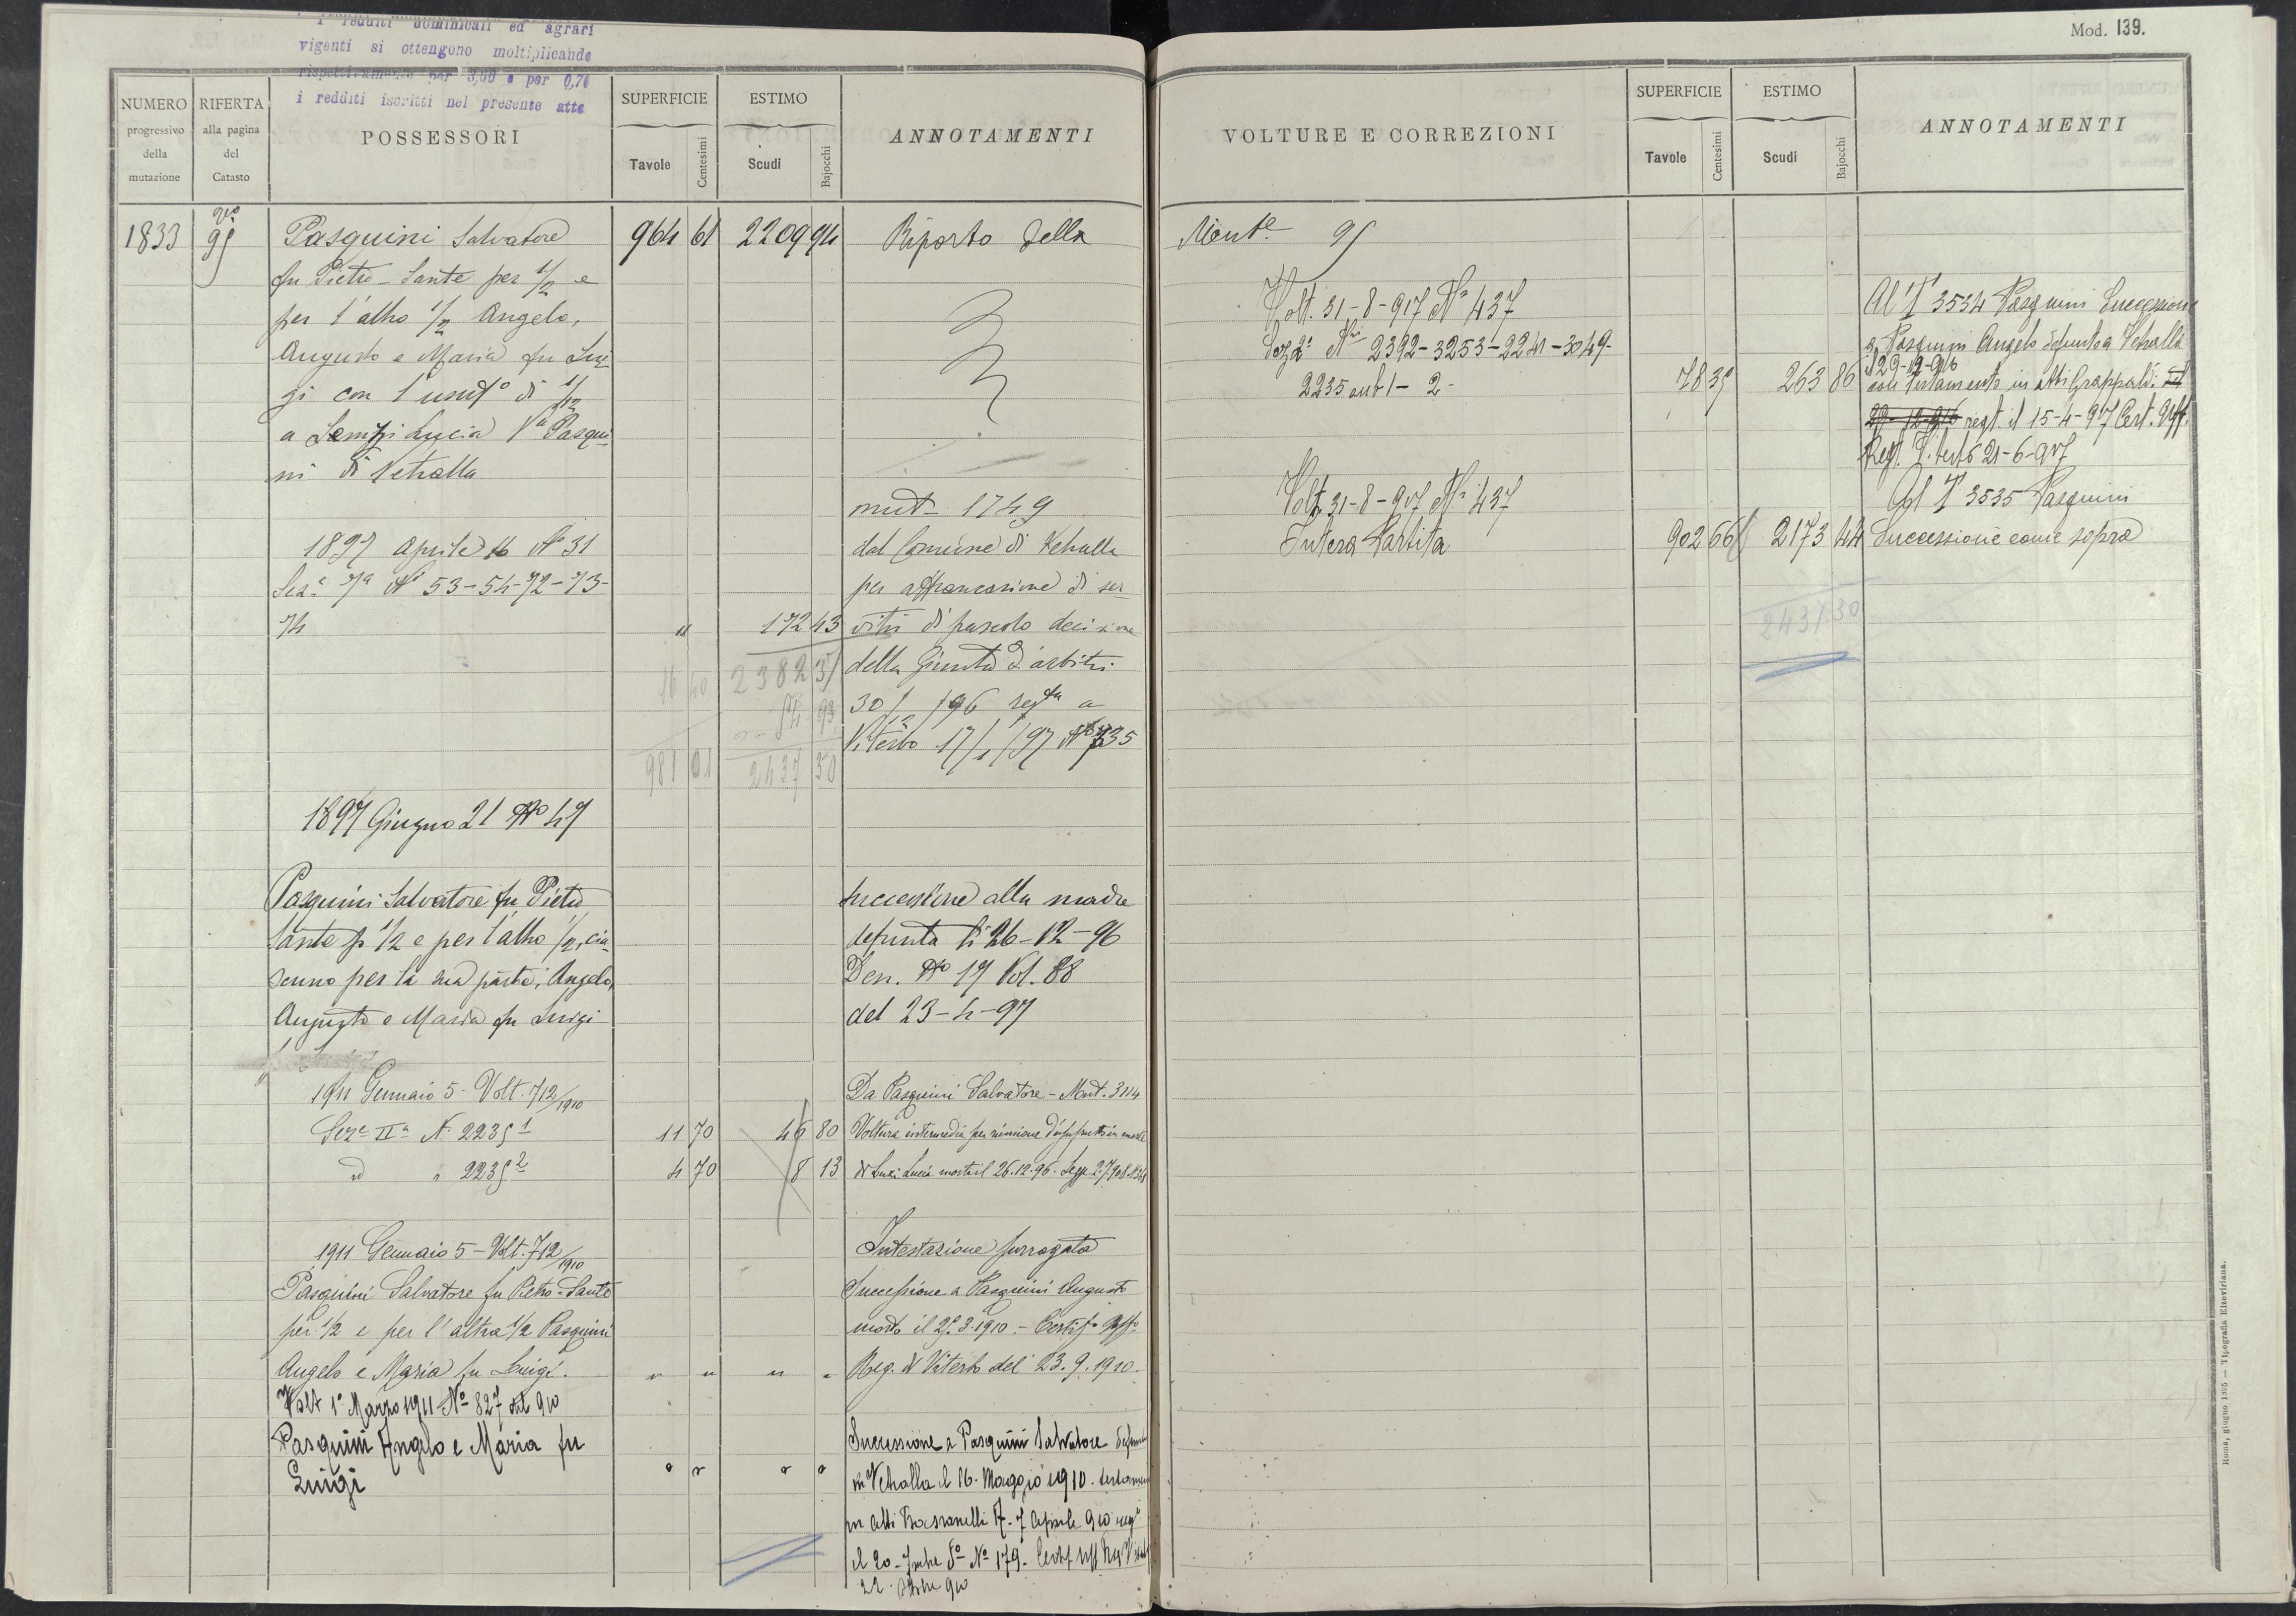 i redditi dominicali ed agrari
vigenti si ottengono moltiplicando
rispettivamente per 3,60 e per 0,70
i redditi iscritti nel presente atto
Mod. 139.
NUMERO progressivo della mutazione
RIFERTA alla pagina del Catasto
POSSESSORI
SUPERFICIE
Tavole
Centesimi
ESTIMO
Scudi
Bajocchi
ANNOTAMENTI
VOLTURE E CORREZIONI
SUPERFICIE
Tavole
Centesimi
ESTIMO
Scudi
Bajocchi
ANNOTAMENTI
1833 95 Pasquini Salvatore 964 61 2209 94 Riporto della
fu Pietro-Sante per 1/2 e
per l'altro 1/2 Angelo,
Augusto e Maria fu Lui-
gi con l'usuf.o di 1/12
a Lucia V.a Pasqui-
ni di Vetralla
mut. 1749
1897 Aprile 16 N° 31 dal Comune di Vetralla
Sez.e 7a N.i 53-54-72-73- per affrancazione di ser-
74 " 172 43 vitù di pascolo decisione
2382 37 della Giunta d'arbitri
16 40 54 93 30/12/96 reg.ta a
Viterbo 17/1/97 N° 335
981 01 2437 30
1897 Giugno 21 N° 47
Pasquini Salvatore fu Pietro successione alla madre
Sante p 1/2 e per l'altro 1/2, cia- defunta li 26-12-96
scuno per la sua parte, Angelo, Den. N° 17 Vol. 88
Augusto e Maria fu Luigi del 23-4-97
1911 Gennaio 5 - Volt. 712/1910 Da Pasquini Salvatore - Mut. 3114
Sez.e II.a N. 2235 1 11 70 46 80 Voltura intermedia per riunione d'usufrutto in morte
id " 2235 2 4 70 8 13 di Lucia morta il 26.12.96. Legge 2.7.908
1911 Gennaio 5 - Volt. 712/1910 Intestazione surrogata
Pasquini Salvatore fu Pietro-Sante Successione a Pasquini Augusto
per 1/2 e per l'altra 1/2 Pasquini morto il 25.3.1910. - Certif.o Uff.o
Angelo e Maria fu Luigi. " " " " Reg. di Viterbo del 23.9.1910.
Volt 1° Marzo 1911 N° 827 del 910
Pasquini Angelo e Maria fu Successione a Pasquini Salvatore
Luigi " " " " in Vetralla il 16. Maggio 1910.
in atti 7 Aprile 910
il 20 N° 179.
22. 910
Mont.e 95
Volt. 31-8-917 N° 437 Al T 3534 Pasquini Successione
Sez. 2a N.i 2392-3253-2241-3049- a Pasquini Angelo defunto a Vetralla
il 29-12-916
2235 sub 1-2- 78 35 263 86 con testamento in atti Grappaldi il
29-12-916 regt. il 15-4-917 Cert. Uff.
Reg. Viterbo 21-6-917
Volt. 31-8-917 N° 437 Al T 3535 Pasquini
Intera Partita 902 66 2173 44 Successione come sopra
2437.30
Roma, giugno 1895 — Tipografia Elzeviriana.